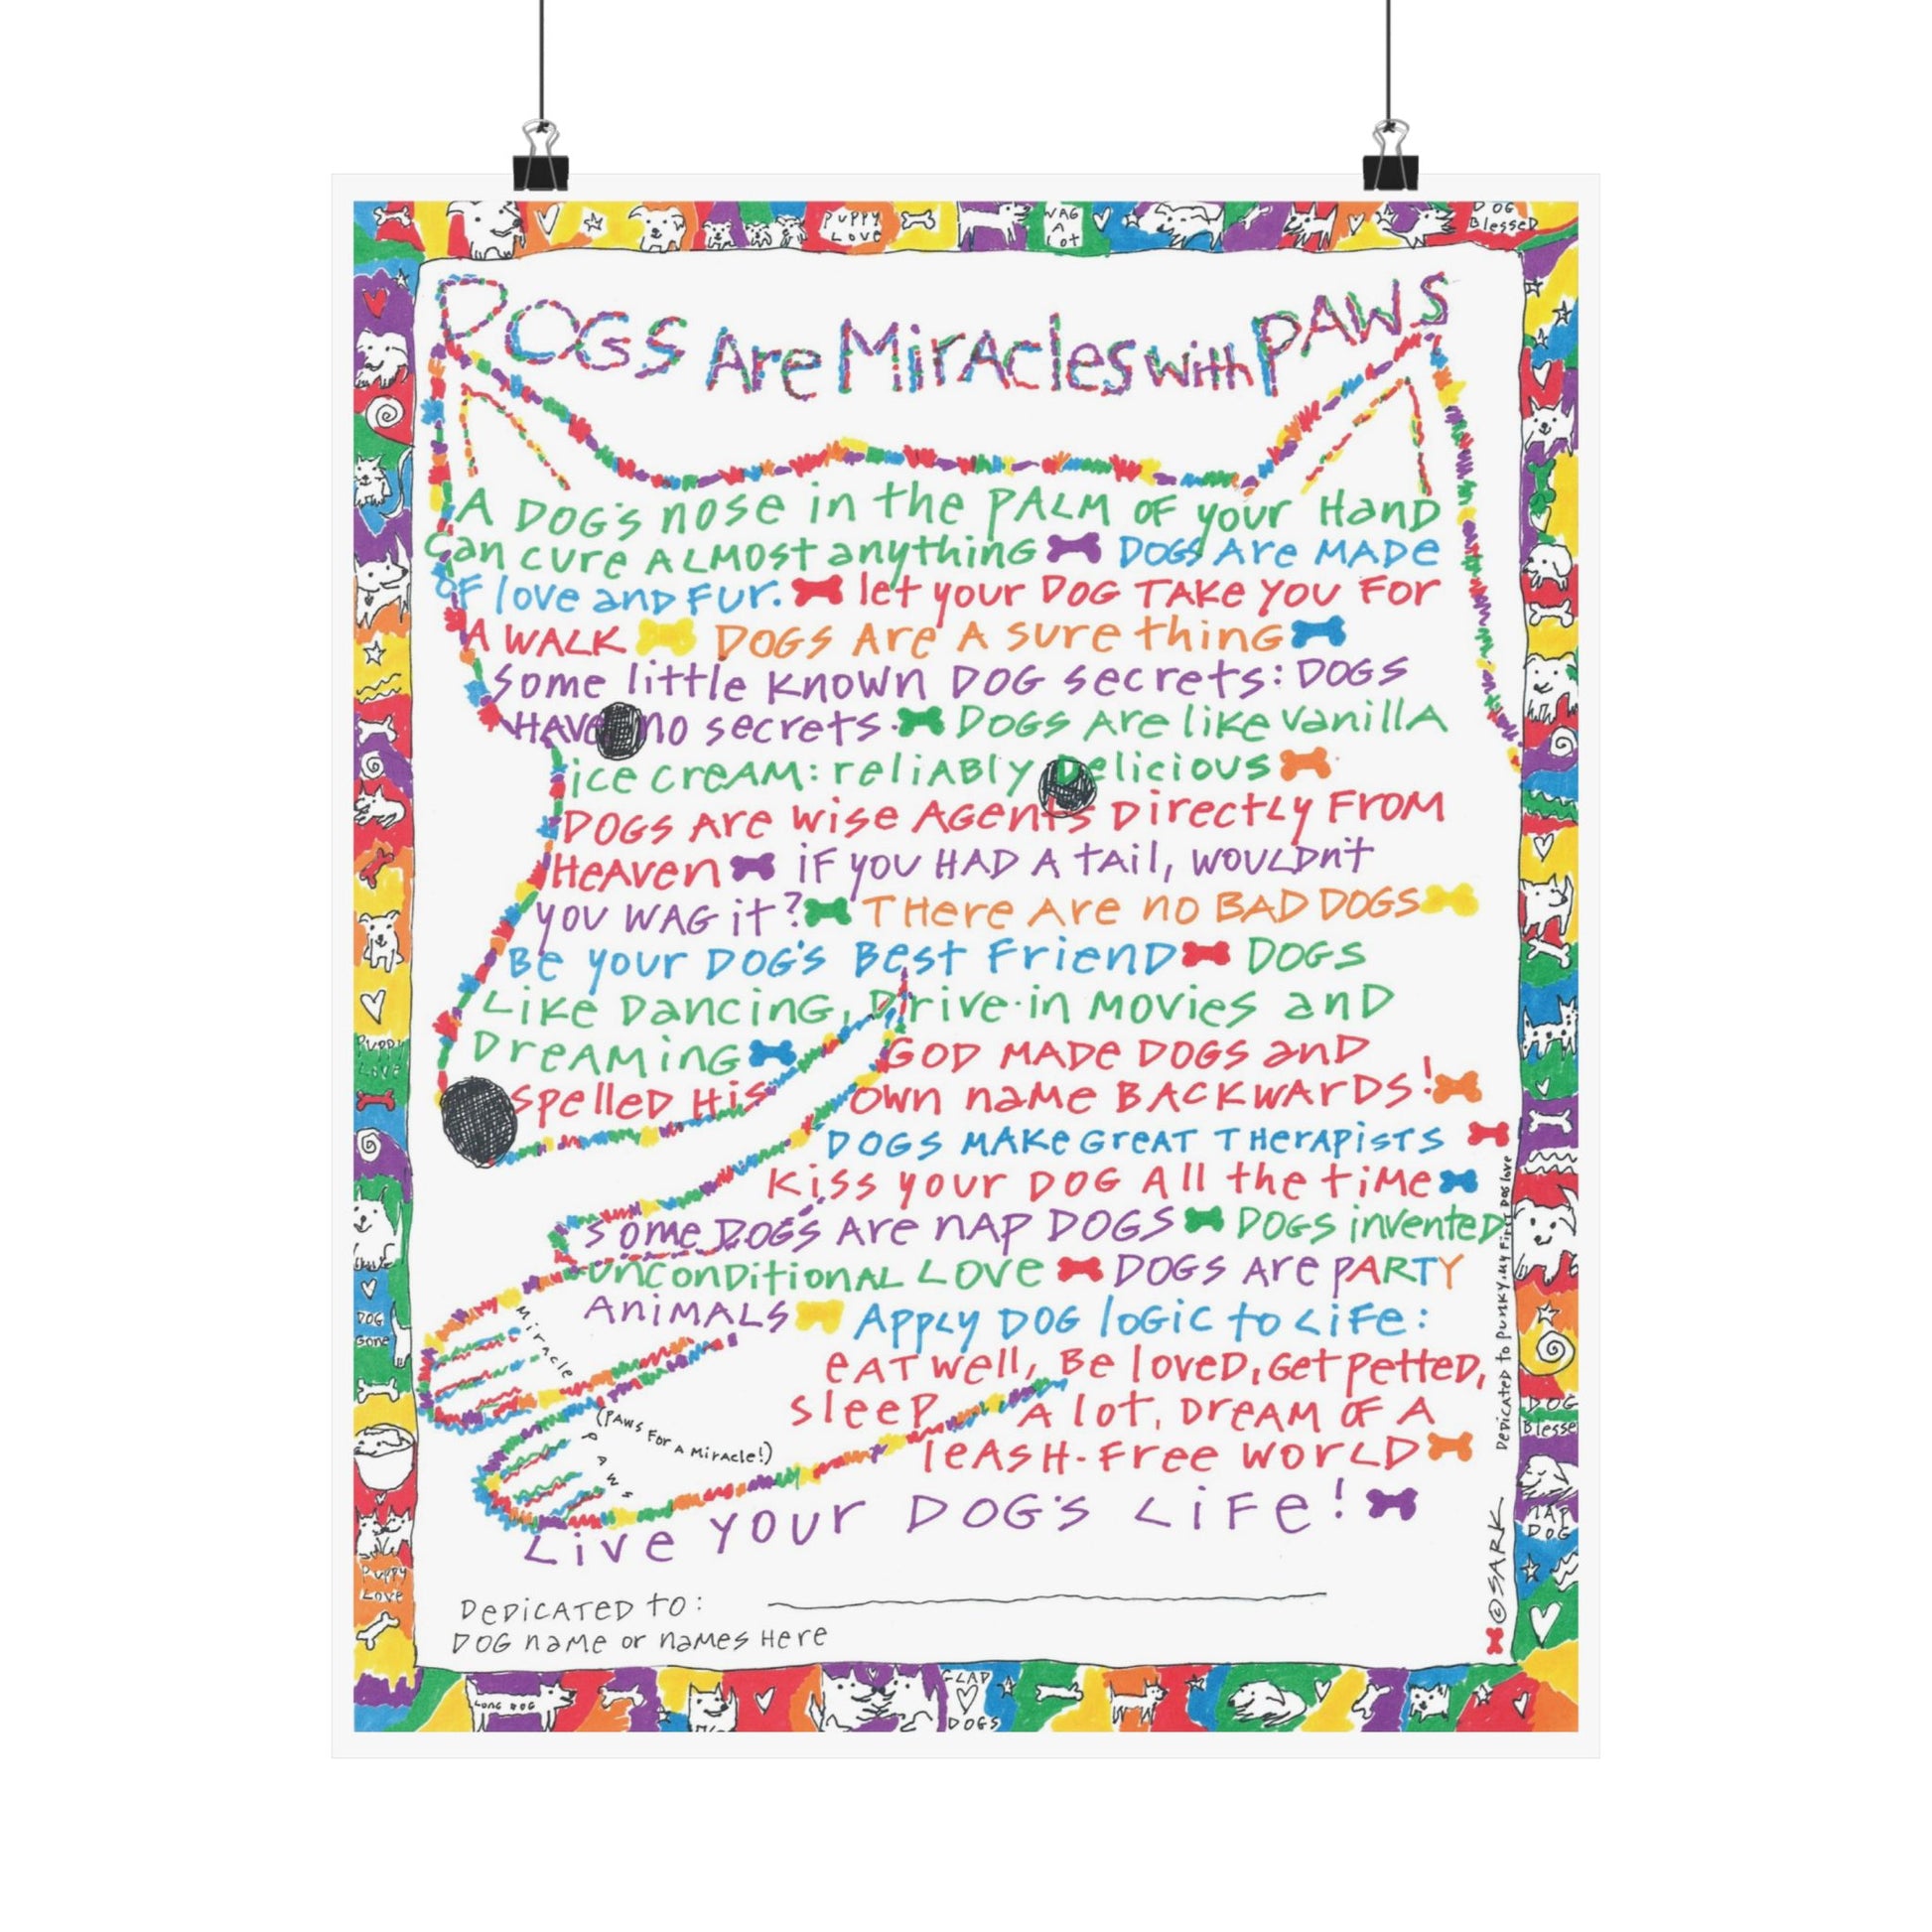 PUPPY
LOVE
WAG
A
Lot
DOG
Blessed
DOGS Are MirAcles with PAWS
A DOG's nose in the PALM OF your HanD
Can cure ALMOst anything DOGS Are MADE
OF love anD FUr. let your DOG TAKe YOU FOr
A WALK DOGS Are A sure thinG
Some little KnOWn DOG secrets: DOGS
HAVe no secrets. DOGS Are like vanillA
ice creAM: reliABly Delicious
DOGS Are wise AGents DirectLy FrOM
HeAven iF you HAD A tAil, WOULDn't
you WAG it? THere Are no BAD DOGS
Be your DOG's Best FrienD DOGS
Like DancinG, Drive-in MOVies anD
DreAMinG GOD MADe DOGS anD
spelleD His OWn naMe BACKWArDS!
DOGS MAKe GreAT THerAPisTS
Kiss your DOG All the tiMe
some DOGS Are nAp DOGS DOGS inventeD
UnconDitionAL LOVe DOGS Are pARTY
AniMALS Apply DOG loGic to LiFe:
eAT well, Be loveD, Get petteD,
sleep A lot, DreAM OF A
leASH-Free WOrLD
Live YOUr DOG'S LiFe!
Miracle
(PAWS FOr A Miracle!)
PAWS
DeDicATeD to Punky, My First DOG love
© SARK
DeDiCATeD to:
DOG naMe or naMes Here
PUPPY
DOG
Gone
Puppy
Love
DOG
Blesse
NAP
DOG
LOnG DOG
GLAD
DOGS